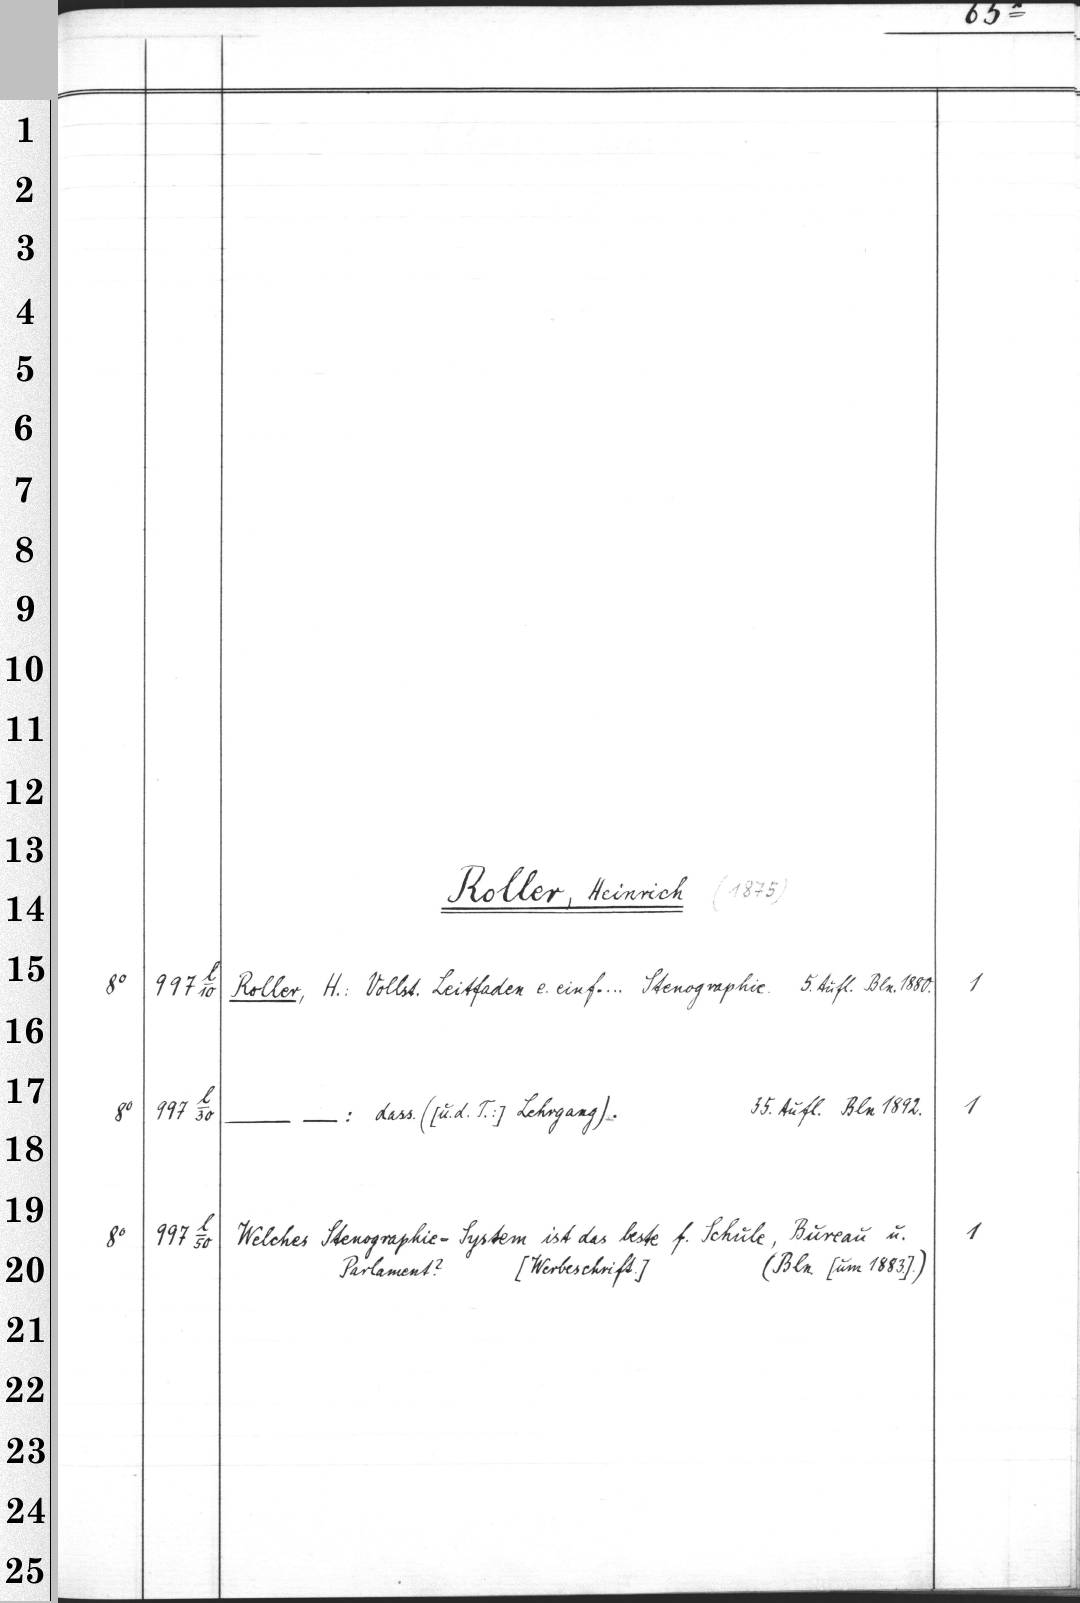 65ª
1
2
3
4
5
6
7
8
9
10
11
12
13
14
Roller, Heinrich (1875)
15
8° 997 l/10 Roller, H.: Vollst. Leitfaden e. einf.... Stenographie. 5. Aufl. Bln. 1880. 1
16
17
8° 997 l/30 ——— ——: dass. ([u. d. T.:] Lehrgang). 35. Aufl. Bln 1892. 1
18
19
8° 997 l/50 Welches Stenographie-System ist das beste f. Schule, Bureau u. 1
20
Parlament? [Werbeschrift.] (Bln. [um 1883].)
21
22
23
24
25